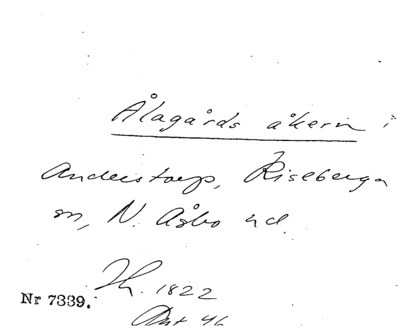 Ålagårds åkern i
Anderstorp, Riseberga
sn, N. Åsbo hd.
Th. 1822
Nr 7339.
Akt 46